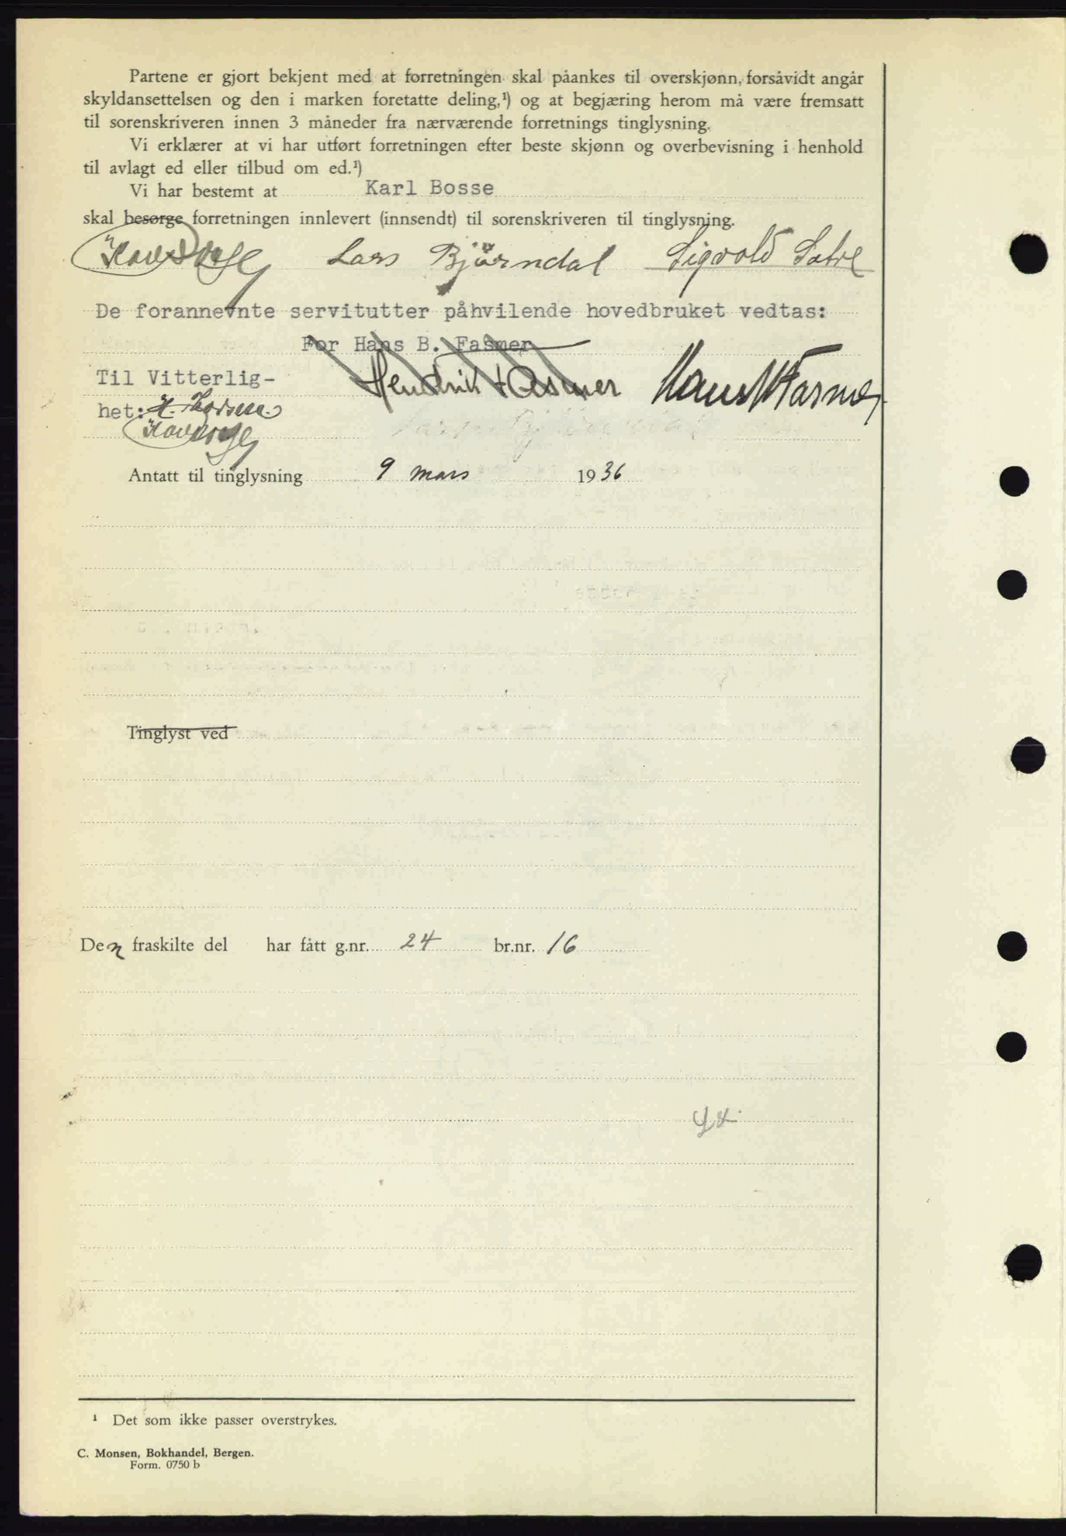 Partene er gjort bekjent med at forretningen skal påankes til overskjønn, forsåvidt angår
skyldansettelsen og den i marken foretatte deling,¹) og at begjæring herom må være fremsatt
til sorenskriveren innen 3 måneder fra nærværende forretnings tinglysning.
Vi erklærer at vi har utført forretningen efter beste skjønn og overbevisning i henhold
til avlagt ed eller tilbud om ed.¹)
Vi har bestemt at Karl Bosse
skal besørge forretningen innlevert (innsendt) til sorenskriveren til tinglysning.
Lars Bjørndal Sigvold
De forannevnte servitutter påhvilende hovedbruket vedtas:
For Hans B. Fasmer
Til Vitterlig- Hendrik Fasmer Hans B Fasmer
het:
Antatt til tinglysning 9 mars 1936
Tinglyst ved
Den fraskilte del har fått g.nr. 24 br.nr. 16
¹ Det som ikke passer overstrykes.
C. Monsen, Bokhandel, Bergen.
Form. 0750 b